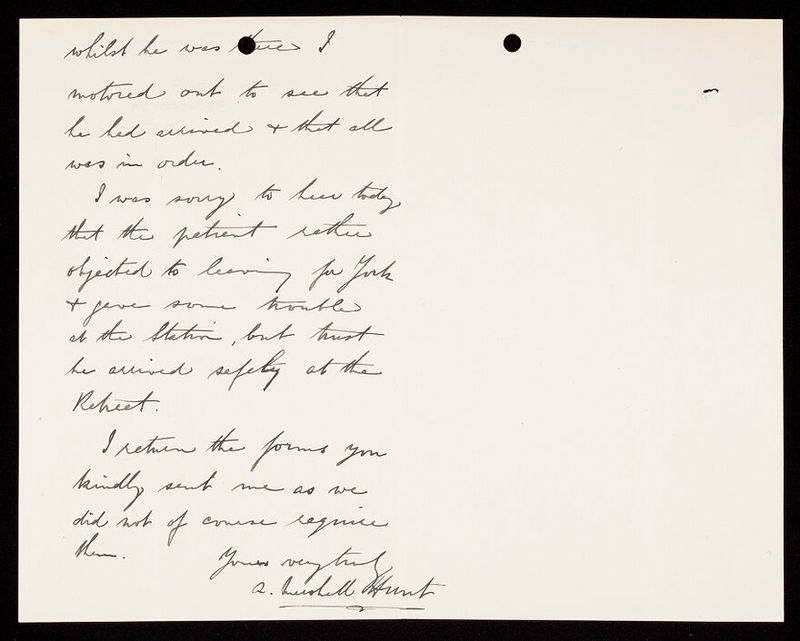 whilst he was there I
motored out to see that
he had arrived & that all
was in order.
I was sorry to hear today
that the patient rather
objected to leaving for York
& gave some trouble
at the Station, but trust
he arrived safely at the
Retreat.
I return the forms you
kindly sent me as we
did not of course require
them.
Yours very truly
A. Marshall Hunt